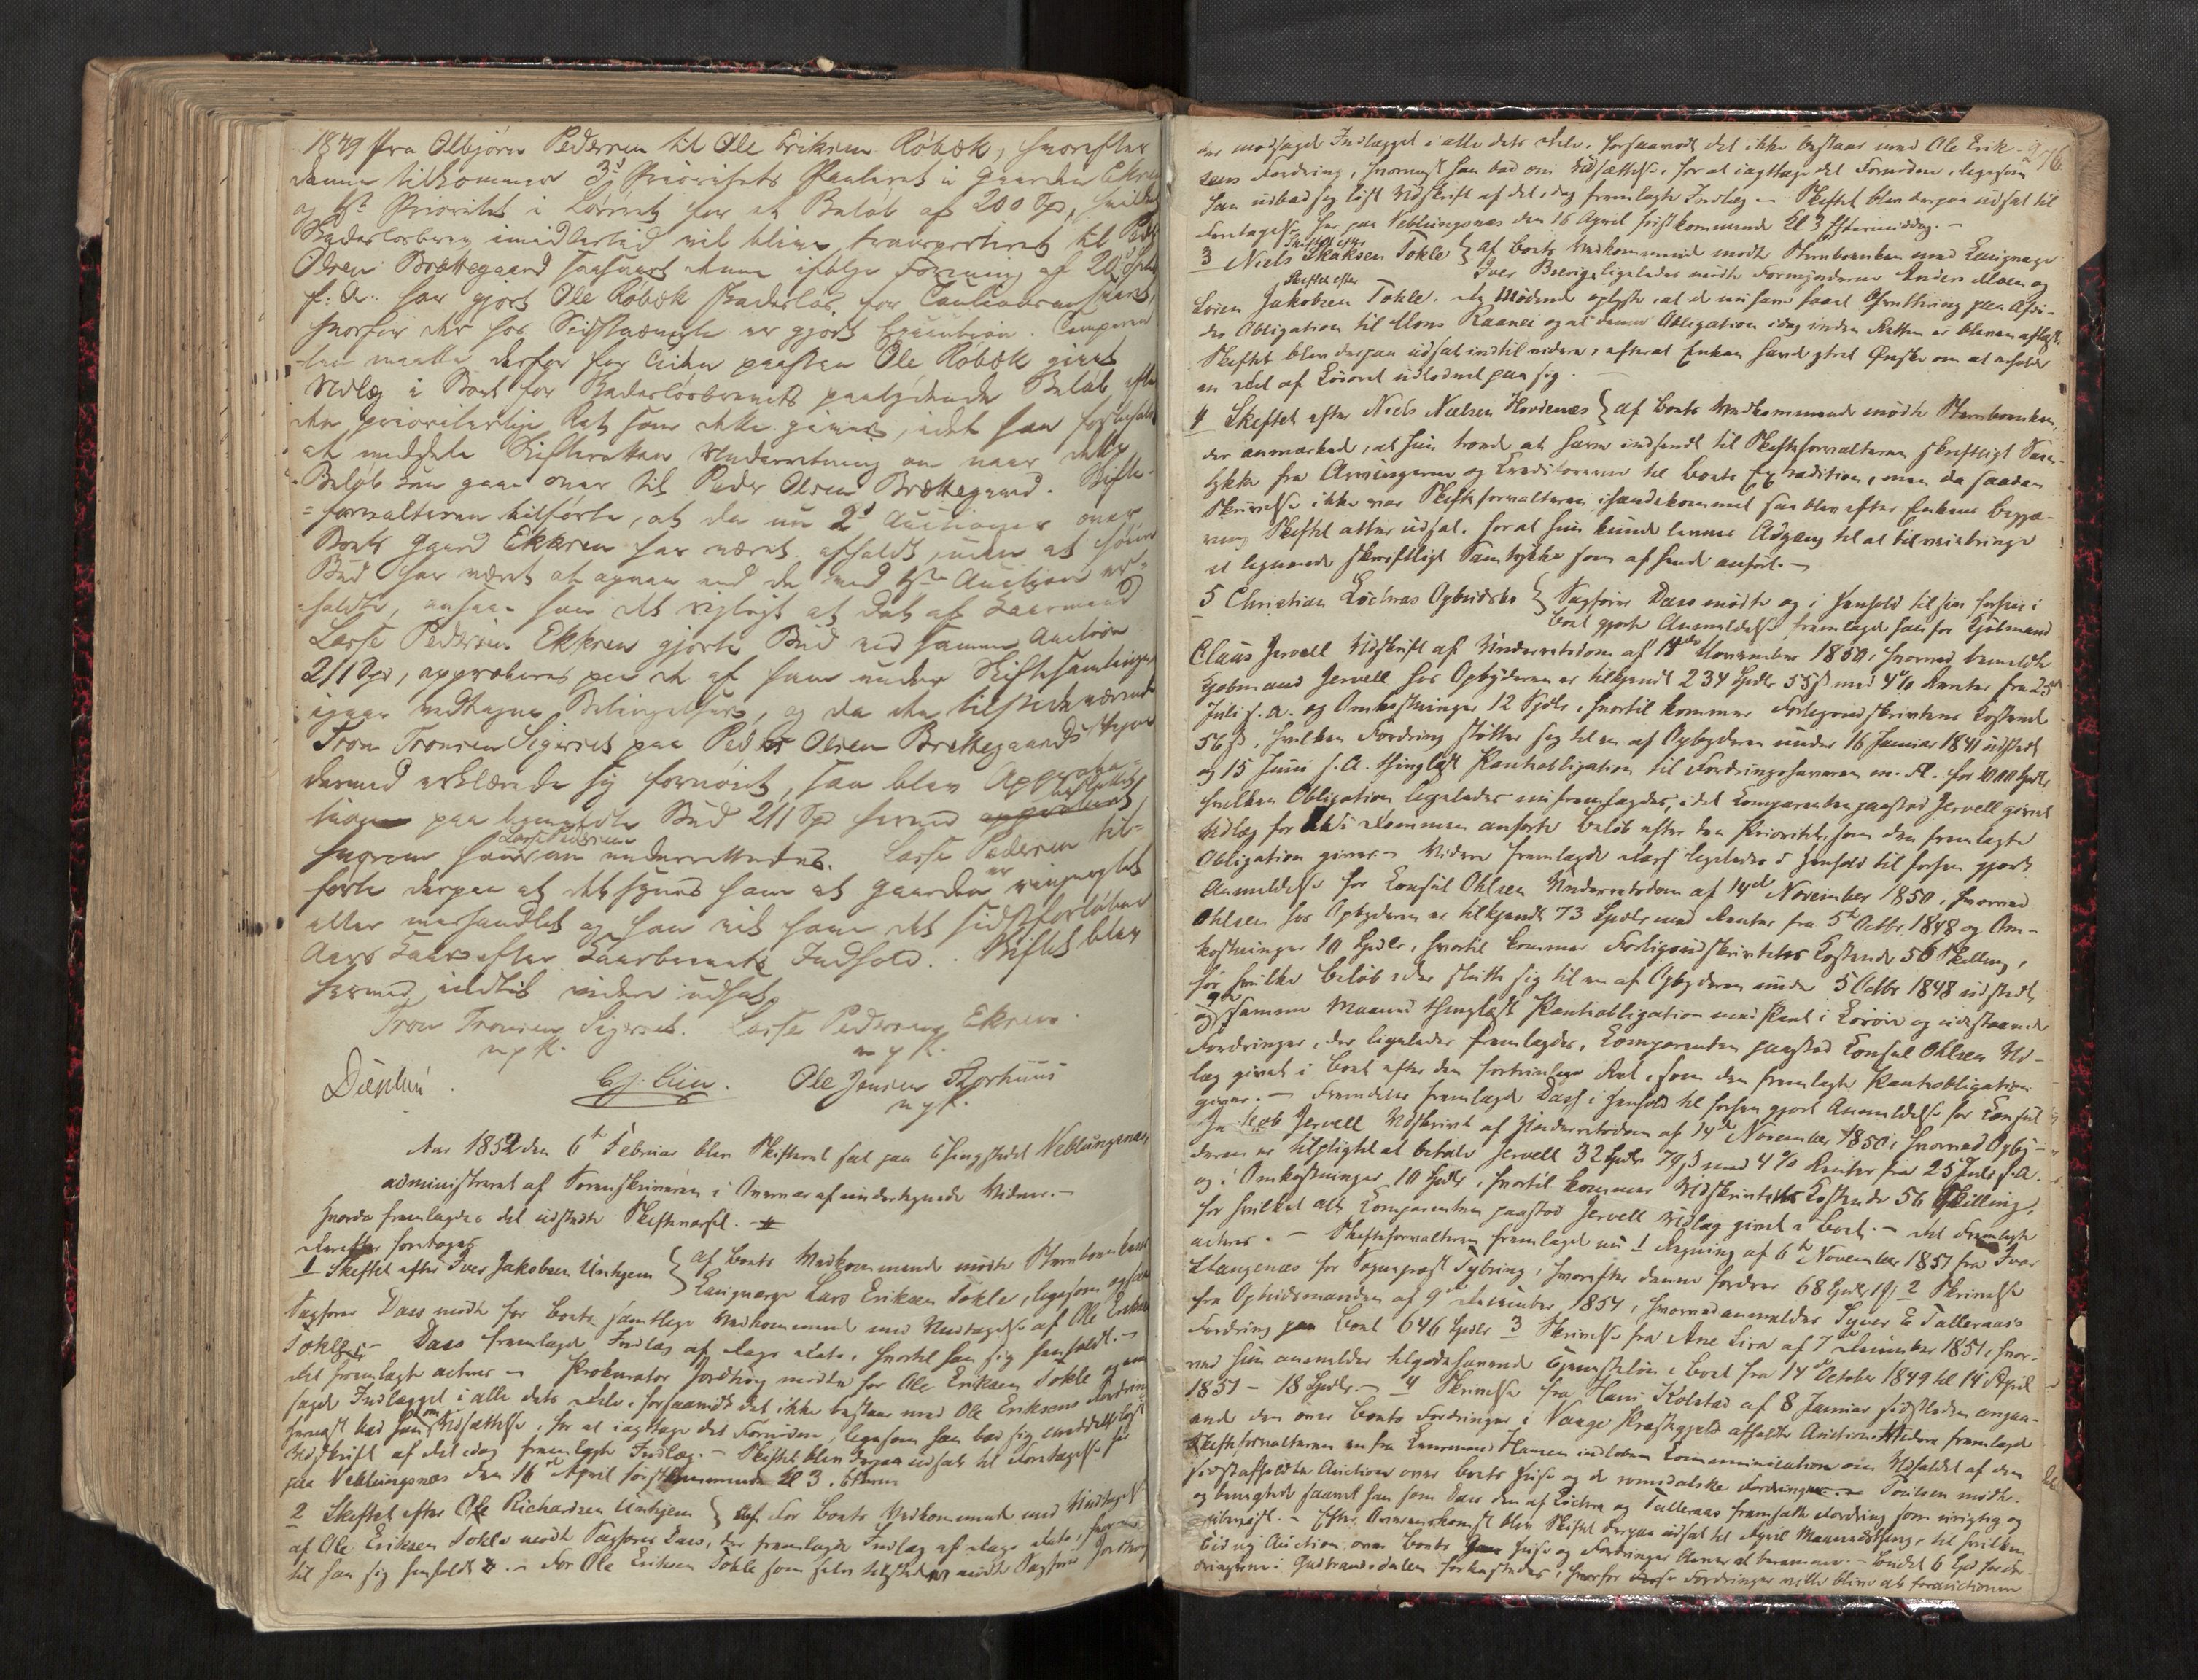 1849 fra Olbjørn Pedersen til Ole Eriksen Röbæk, hvorefter
denne tilkommer 3d Prioritets Panteret i Gaarden Ekren
og 1ste Prioritet i Lösöret for et Beløb af 200 Spd, hvilket
imidlertid vil blive transporteret til Peder
Olsen Brættegaard saasnart denne ifølge Forening af 20
s: A: har gjort Ole Röbæk skadeslös for Cautionsansvaret,
hvorfor der hos Sidstnævnte er gjort Execution. Comparen-
ten maatte derfor for Tiden paastaa Ole Röbæk givet
Udlæg i Boet for Skadeslösbrevets paalydende Beløb efter
den prioriterlige Ret som dette giver, idet han forbeholdt
at meddele Skifteretten Underretning om naar dette
Beløb kan gaae over til Peder Olsen Brættegaard. Skifte-
forvalteren tilförte, at da nu 2d Auctioner over
Boets Gaard Ekkren har været afholdt, uden at höiere
Bud har været at opnaae end de ved 1ste Auction er-
holdte, ansaae han det rigtigst at det af Kaarmand
Lasse Pedersen Ekkren gjorte Bud ved samme Auction
211 Spd, approberes paa de af ham under Skiftesamlingen
igaar vedtagne Betingelser, og da den tilstedeværende
Tron Tronsen Sigerset paa Peder Olsen Brettegaards Vegne
dermed erklærede sig fornøiet, saa blev Approba-
tionen paa bemeldte Bud 211 Spd herved approberet,
hvorom Lasse Pedersen underrettedes. Lasse Pedersen til-
førte derpaa at det synes ham at Gaarden er ringeagtet
eller mishandlet og han vil have det sidstforløbne
Aars Kaar efter Kaarbrevets Indhold. Skiftet blev
hermed indtil videre udsat
Tron Tronsen Sigerset. Lasse Pedersen Ekren.
m p k. m p k.
Ole Jensen Thorhuus
m p k.
Aar 1852 den 6te Februar blev Skifteret sat paa Thingstedet Veblungsnæs
administreret af Sorenskriveren i Overvær af undertegnede Vidner. –
Hvorda fremlagdes det udstædte Skiftevarsel. –
Derefter foretoges
1 Skiftet efter Iver Jakobsen Unhjem } af Boets Vedkommende mødte Stervboenken
Laugværge Lars Eriksen Tokle, ligesom ogsaa
Sagfører Dass mødte for Boets samtlige Vedkommende med Undtagelse af Ole Eriksen
Tokle. – Dass fremlagde Indlæg af Dags Dato, hvortil han sig henholdt. –
Det fremlagte acteres – Prokurator Jordhøy mødte for Ole Eriksen Tokle og mod-
sagde Indlægget i alle dets Dele, forsaavidt det ikke bestaaer med Ole Eriksens Fordring
hvornæst bad han om Udsættelse, for at iagttage det Fornødne, ligesom han bad sig meddeelt løst
Udskrift af det idag fremlagte Indlæg. – Skiftet blev derpaa udsat til Foretagelse her
paa Veblungsnæs den 16de April førstkommende Kl 3 Efterm
2 Skiftet efter Ole Richardsen Unhjem } For Boets Vedkommende med Undtagelse
af Ole Eriksen Tokle mødte Sagfører Dass, der fremlagde Indlæg af Dags Dato, hvor-
til han sig henholdt. – For Ole Eriksen Tokle som selv tilstede mødte Sagfører Jordhøy
976
der modsagde Indlægget i alle dets Dele, forsaavidt det ikke bestaaer med Ole Erik-
sens Fordring, hvornæst han bad om Udsættelse, for at iagttage det Fornødne, ligesom
han udbad sig løst Udskrift af det idag fremlagte Indlæg – Skiftet blev derpaa udsat til
Foretagelse her paa Veblungsnæs den 16 April førstkommende Kl 3 Eftermiddag. –
3 Skiftet efter Niels Isaksen Tokle } af Boets Vedkommende mødte Stervboenken med Laugværge
Skiftet efter Iver Bverige ligeledes mødte Formynderne Anders Moen og
Søren Jakobsen Tokle. De Mødende oplyste, at de nu have faaet Qvittering paa Afdø-
des Obligation til Mons Raanei og at denne Obligation idag inden Retten er bleven aflyst.
Skiftet blev derpaa udsat indtil videre, efterat Enken havde ytret Ønske om at erholde
en Deel af Løsøret udlodnet paa sig. –
4 Skiftet efter Niels Nielsen Hovdenæs } af Boets Vedkommende mødte Stervboenken,
der anmærkede, at hun troede at have indsendt til Skifteforvalteren skriftligt Sam-
tykke fra Arvingerne og Creditorerne til Boets Extradition, men da saadan
Skrivelse ikke var Skifteforvalteren ihændekommet saa blev efter Enkens Begjæ-
ring Skiftet atter udsat, for at hun kunde levnes Adgang til at tilveiebringe
et lignende skriftligt Samtykke som af hende anført. –
5 Christian Lochras Opbudsbo } Sagfører Dass mødte og i Henhold til sin forhen i
Boet gjorte Anmeldelse fremlagde han for Kjøbmand
Claus Jervell Udskrift af Underretsdom af 14de November 1850, hvorved bemeldte
Kjøbmand Jervell hos Opbyderen er tilkjendt 234 Spdlr 55 ß med 4% Renter fra 25de
Juli s. A. og Omkostninger 12 Spdlr, hvortil kommer Forligsudskriftens Kostende
56 ß, hvilken Fordring støtter sig til en af Opbyderen under 16 Januar 1841 udstedt
og 15 Juni s. A. thinglæst Panteobligation til Fordringshaveren m. Fl. for 1000 Spdlr
hvilken Obligation ligeledes nu fremlagdes, idet Comparenten paastod Jervell givet
Udlæg for det i Dommen anførte Beløb efter den Prioritet, som den fremlagte
Obligation giver. – Videre fremlagde Dass ligeledes i Henhold til forhen gjort
Anmeldelse for Consul Ohlsen Underretsdom af 14de November 1850, hvorved
Ohlsen hos Opbyderen er tilkjendt 73 Spdlr med Renter fra 5te Octbr 1848 og Om-
kostninger 10 Spdlr, hvortil kommer Forligsudskriftens Kostende 56 Skilling,
for hvilke Beløb der støtte sig til en af Opbyderen under 5 Octbr 1848 udstedt
og 9de samme Maaned thinglæst Panteobligation med Pant i Løsøre og udestaaende
Fordringer, der ligeledes fremlagdes, Comparenten paastod Consul Ohlsen Ud-
læg givet i Boet efter den fortrinlige Ret, som den fremlagte Panteobligation
giver. – Fremdeles fremlagde Dass i Henhold til forhen gjort Anmeldelse for Consul
Jacob Jervell Udskrift af Underretsdom af 14de November 1850, hvorved Opby-
deren er tilpligtet at betale Jervell 32 Spdlr 79 ß med 4% Renter fra 25 Juli s. A.
og i Omkostninger 10 Spdlr, hvortil kommer Udskriftets Kostende 56 Skilling,
for hvilket alt Comparenten paastod Jervell Udlæg givet i Boet. – Det Fremlagte
acteres. – Skifteforvalteren fremlagde nu 1 Regning af 6te November 1851 fra Ivar
Stangenæs for Sognepræst Sybring, hvorefter denne fordrer 68 Spdlr 19 ß 2 Skrivelse
fra Opbudsmanden af 9de December 1851, hvorved anmeldes Syver E Talleraas
Fordring paa Boet 646 Spdlr 3 Skrivelse fra Ane Lira af 7de December 1851, hvor-
ved hun anmelder tilgodehavende Tjenesteløn i Boet fra 14de October 1849 til 14 April
1851 – 18 Spdlr. – 4 Skrivelse fra Hans Kolstad af 8 Januar sidstleden angaa-
ende den over Boets Fordringer i Vaage Præstegjeld afholdte Auction. Videre fremlagde
Skifteforvalteren en fra Lensmand Hansen indløben Communication om Udfaldet af den
sidstafholdte Auction over Boets Huse og de romsdalske Fordringer. – Poulsen mødte
og benegtede saavel han som Dass den af Lochra og Talleraas fremsatte Fordring som urigtig og
ubeviist. – Efter Overeenskomst blev Skiftet derpaa udsat til April Maanedsthing, til hvilken
Tid ny Auction over Boets Huse og Fordringer bliver at berammes. – Budet 6 Spd for For-
dringerne i Gudbrandsdalen forkastedes, hvorfor disse Fordringer ville blive at forauctionere